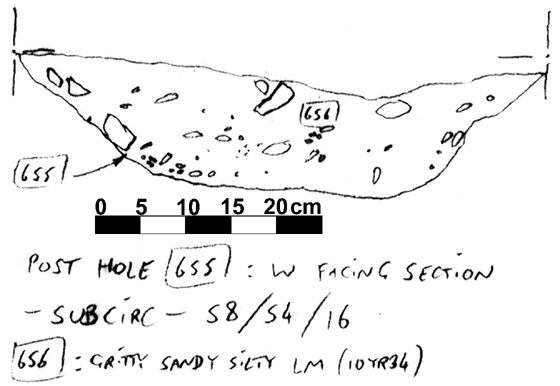 656
655
0 5 10 15 20cm
POST HOLE 655 : W FACING SECTION
- SUBCIRC - 58/54/16
656 : GRITTY SANDY SILTY LM (10YR34)